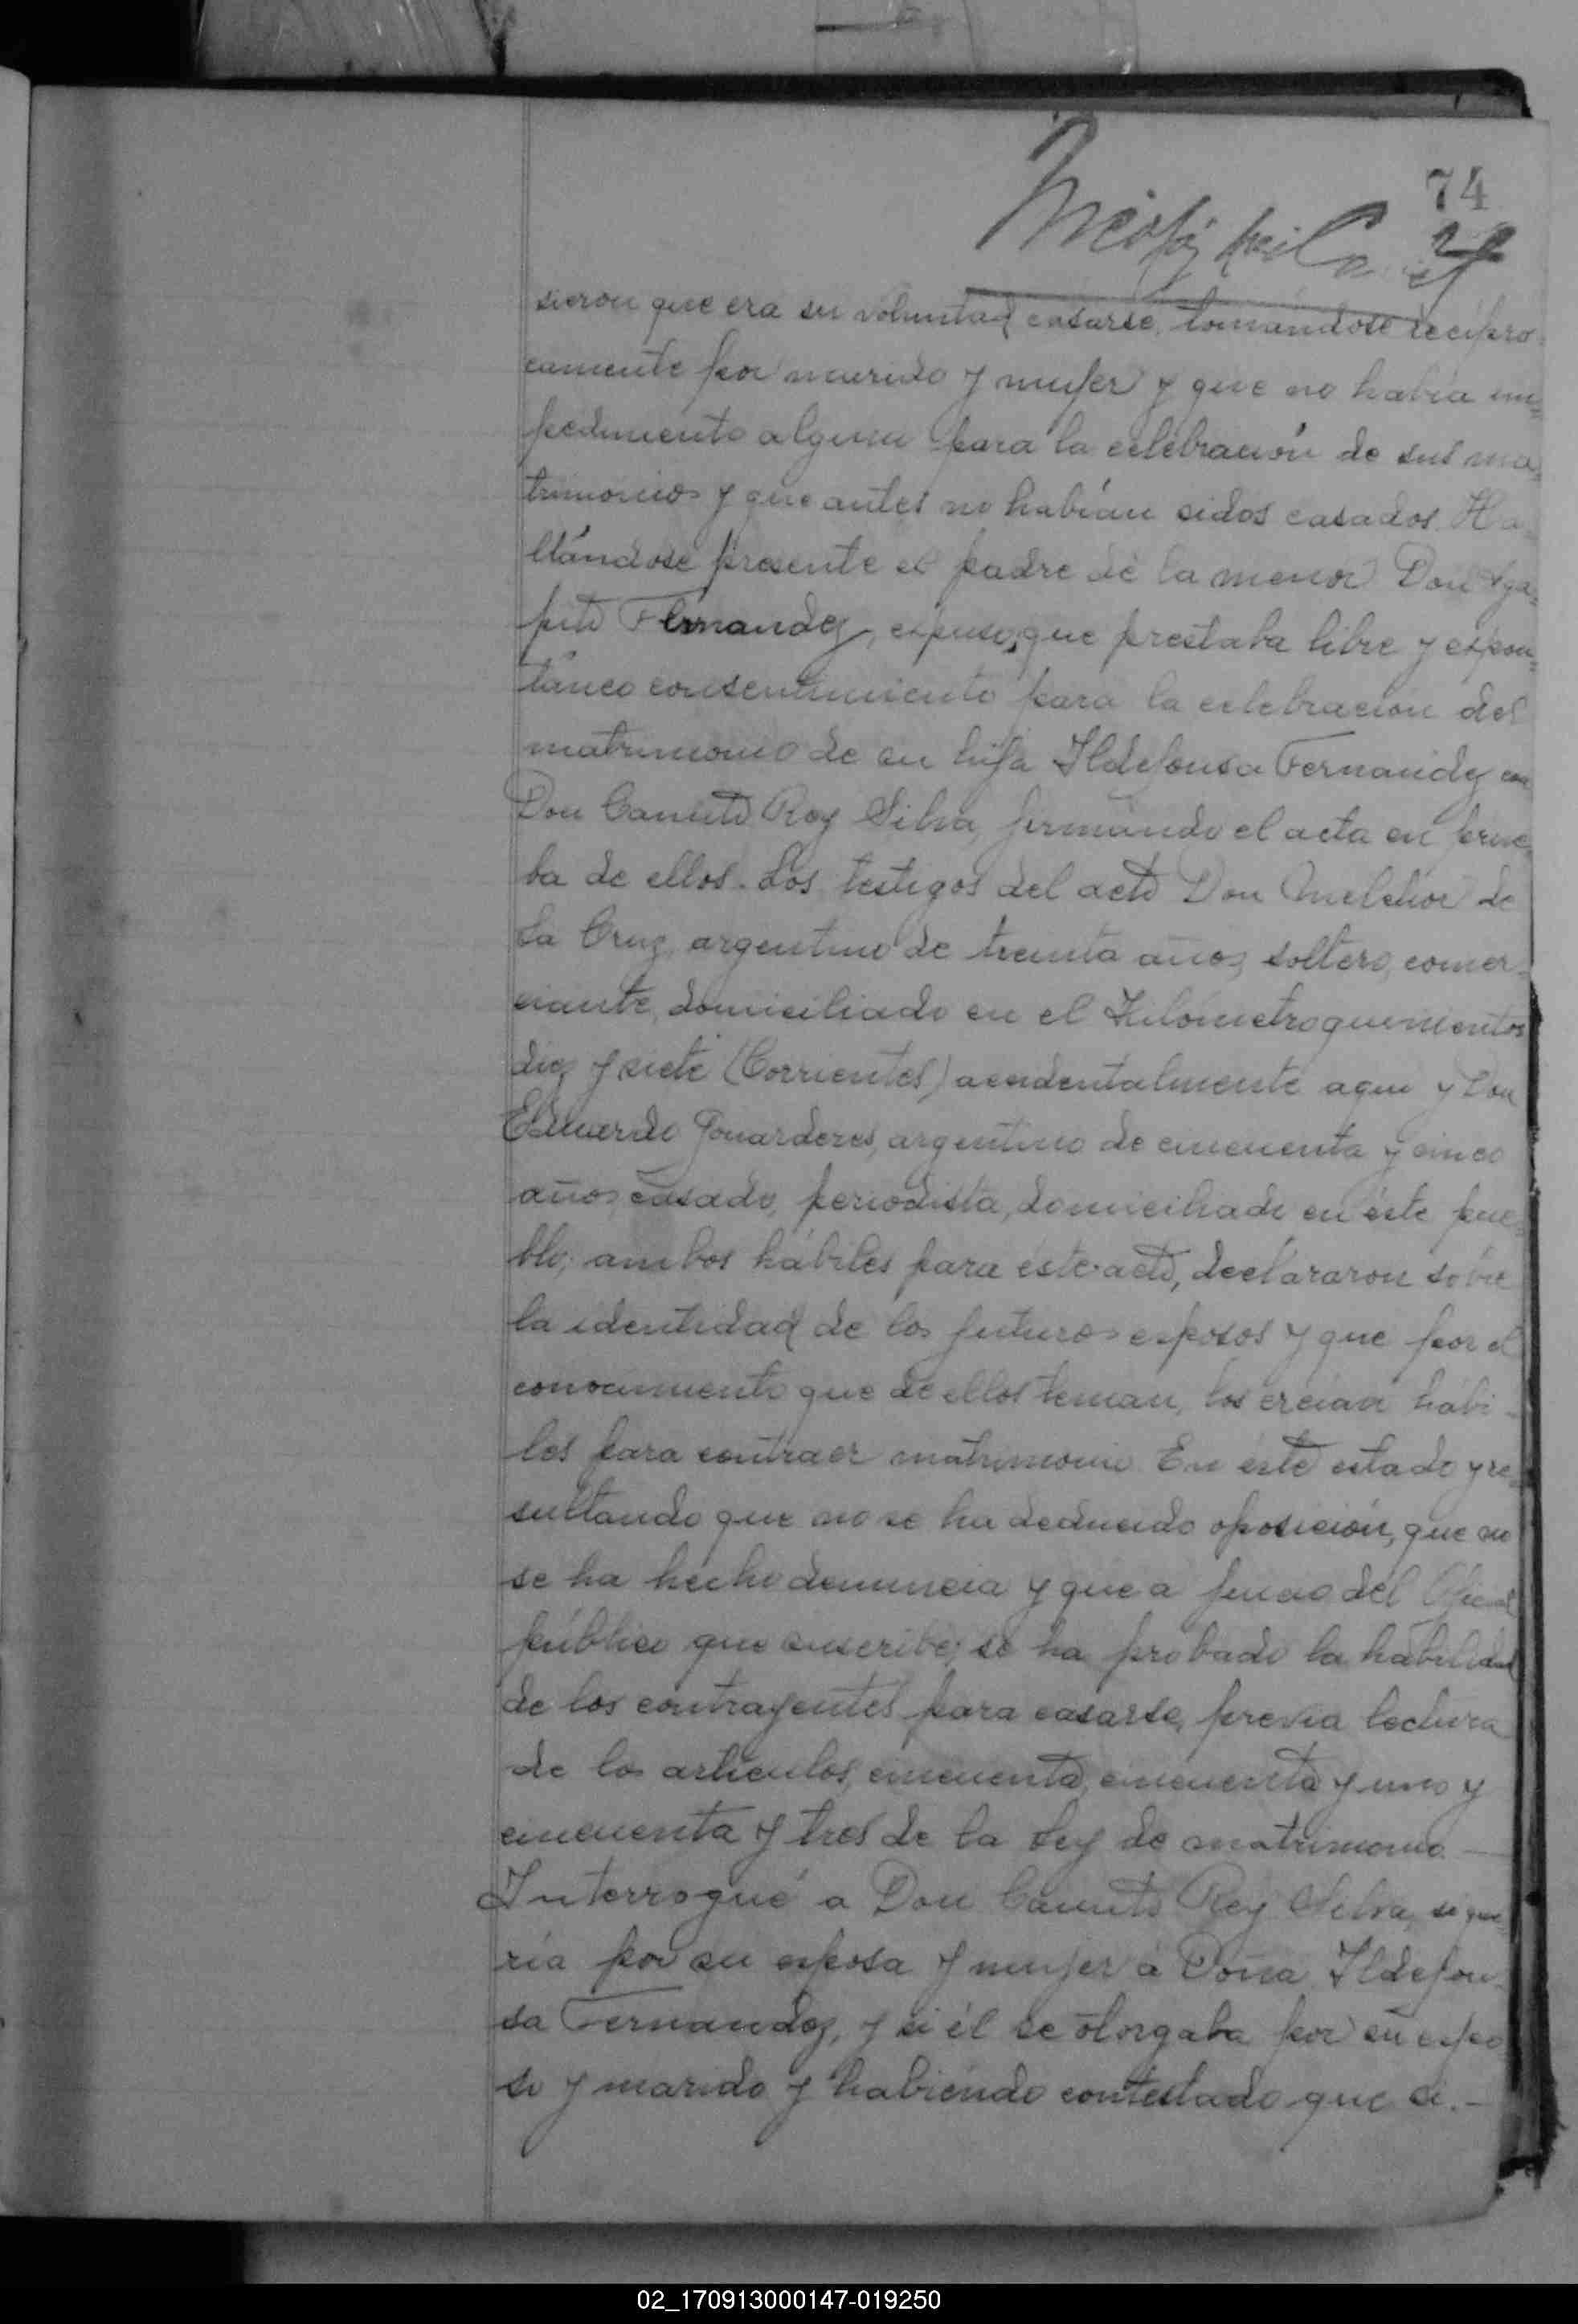 74
sieron que era su voluntad casarse, tomandose recipro=
camente por marido y mujer y que no había im=
pedimento alguno para la celebración de sus ma=
trimonios y que antes no habían sidos casados. Ha=
llándose presente el padre de la menor Don Aga=
pito Fernandez, expuso, que prestaba libre y espon=
táneo consentimiento para la celebracion del
matrimonio de su hija Ildefonsa Fernandez con
Don Canuto Rey Silva, firmando el acta en prue=
ba de ellos. Los testigos del acto Don Melchor de
La Cruz, argentino de treinta años, soltero, comer=
ciante, domiciliado en el Kilómetro quinientos
diez y siete (Corrientes) accidentalmente aqui y Don
Eduardo Gonarderes, argentino de cincuenta y cinco
años, casado, periodista, domiciliado en éste pue=
blo; ambos hábiles para este acto, declararon sobre
la identidad de los futuros esposos y que por el
conocimiento que de ellos tenian, los creían hábi=
les para contraer matrimonio. En éste estado y re=
sultando que no se ha deducido oposición, que no
se ha hecho denuncia y que a juicio del Oficial
público que suscribe, se ha probado la habilidad
de los contrayentes para casarse, previa lectura
de los artículos, cincuenta, cincuenta y uno y
cincuenta y tres de la Ley de matrimonio. —
Interrogué a Don Canuto Rey Silva, si que=
ría por su esposa y mujer a Doña Ildefon=
sa Fernandez, y si él se otorgaba por su espo=
so y marido y habiendo contestado que si. —
02_170913000147-019250